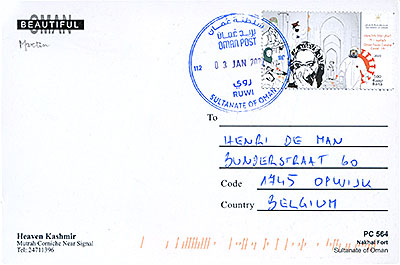 OMAN
BEAUTIFUL
سلطنة عمان
بريد عمان
OMAN POST
112
03 JAN
روي
RUWI
SULTANATE OF OMAN
To
HENRI DE MAN
BUNDERSTRAAT 60
Code 1745 OPWIJK
Country BELGIUM
Heaven Kashmir
Mutrah Corniche Near Signal
Tel: 24711396
PC 564
Nakhal Fort
Sultanate of Oman